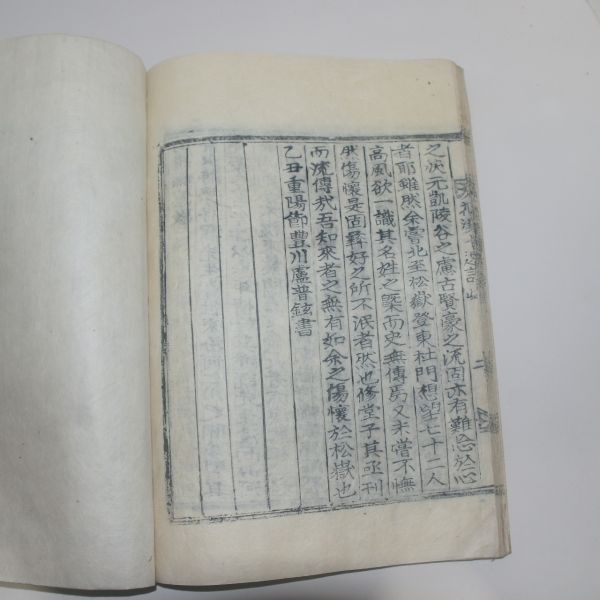 之沢元凱陵谷之慮古賢豪之流固亦有難忘於心
者耶雖然余嘗北至松嶽登東杜門想望七十二人
高風欲一識其名姓之槩而史無傳焉又未嘗不憮
然傷懷是固彛好之所不泯者然也修堂子其亟刊
而流傳哉吾知來者之無有如余之傷懷於松嶽也
乙丑重陽節豐川盧普鉉書